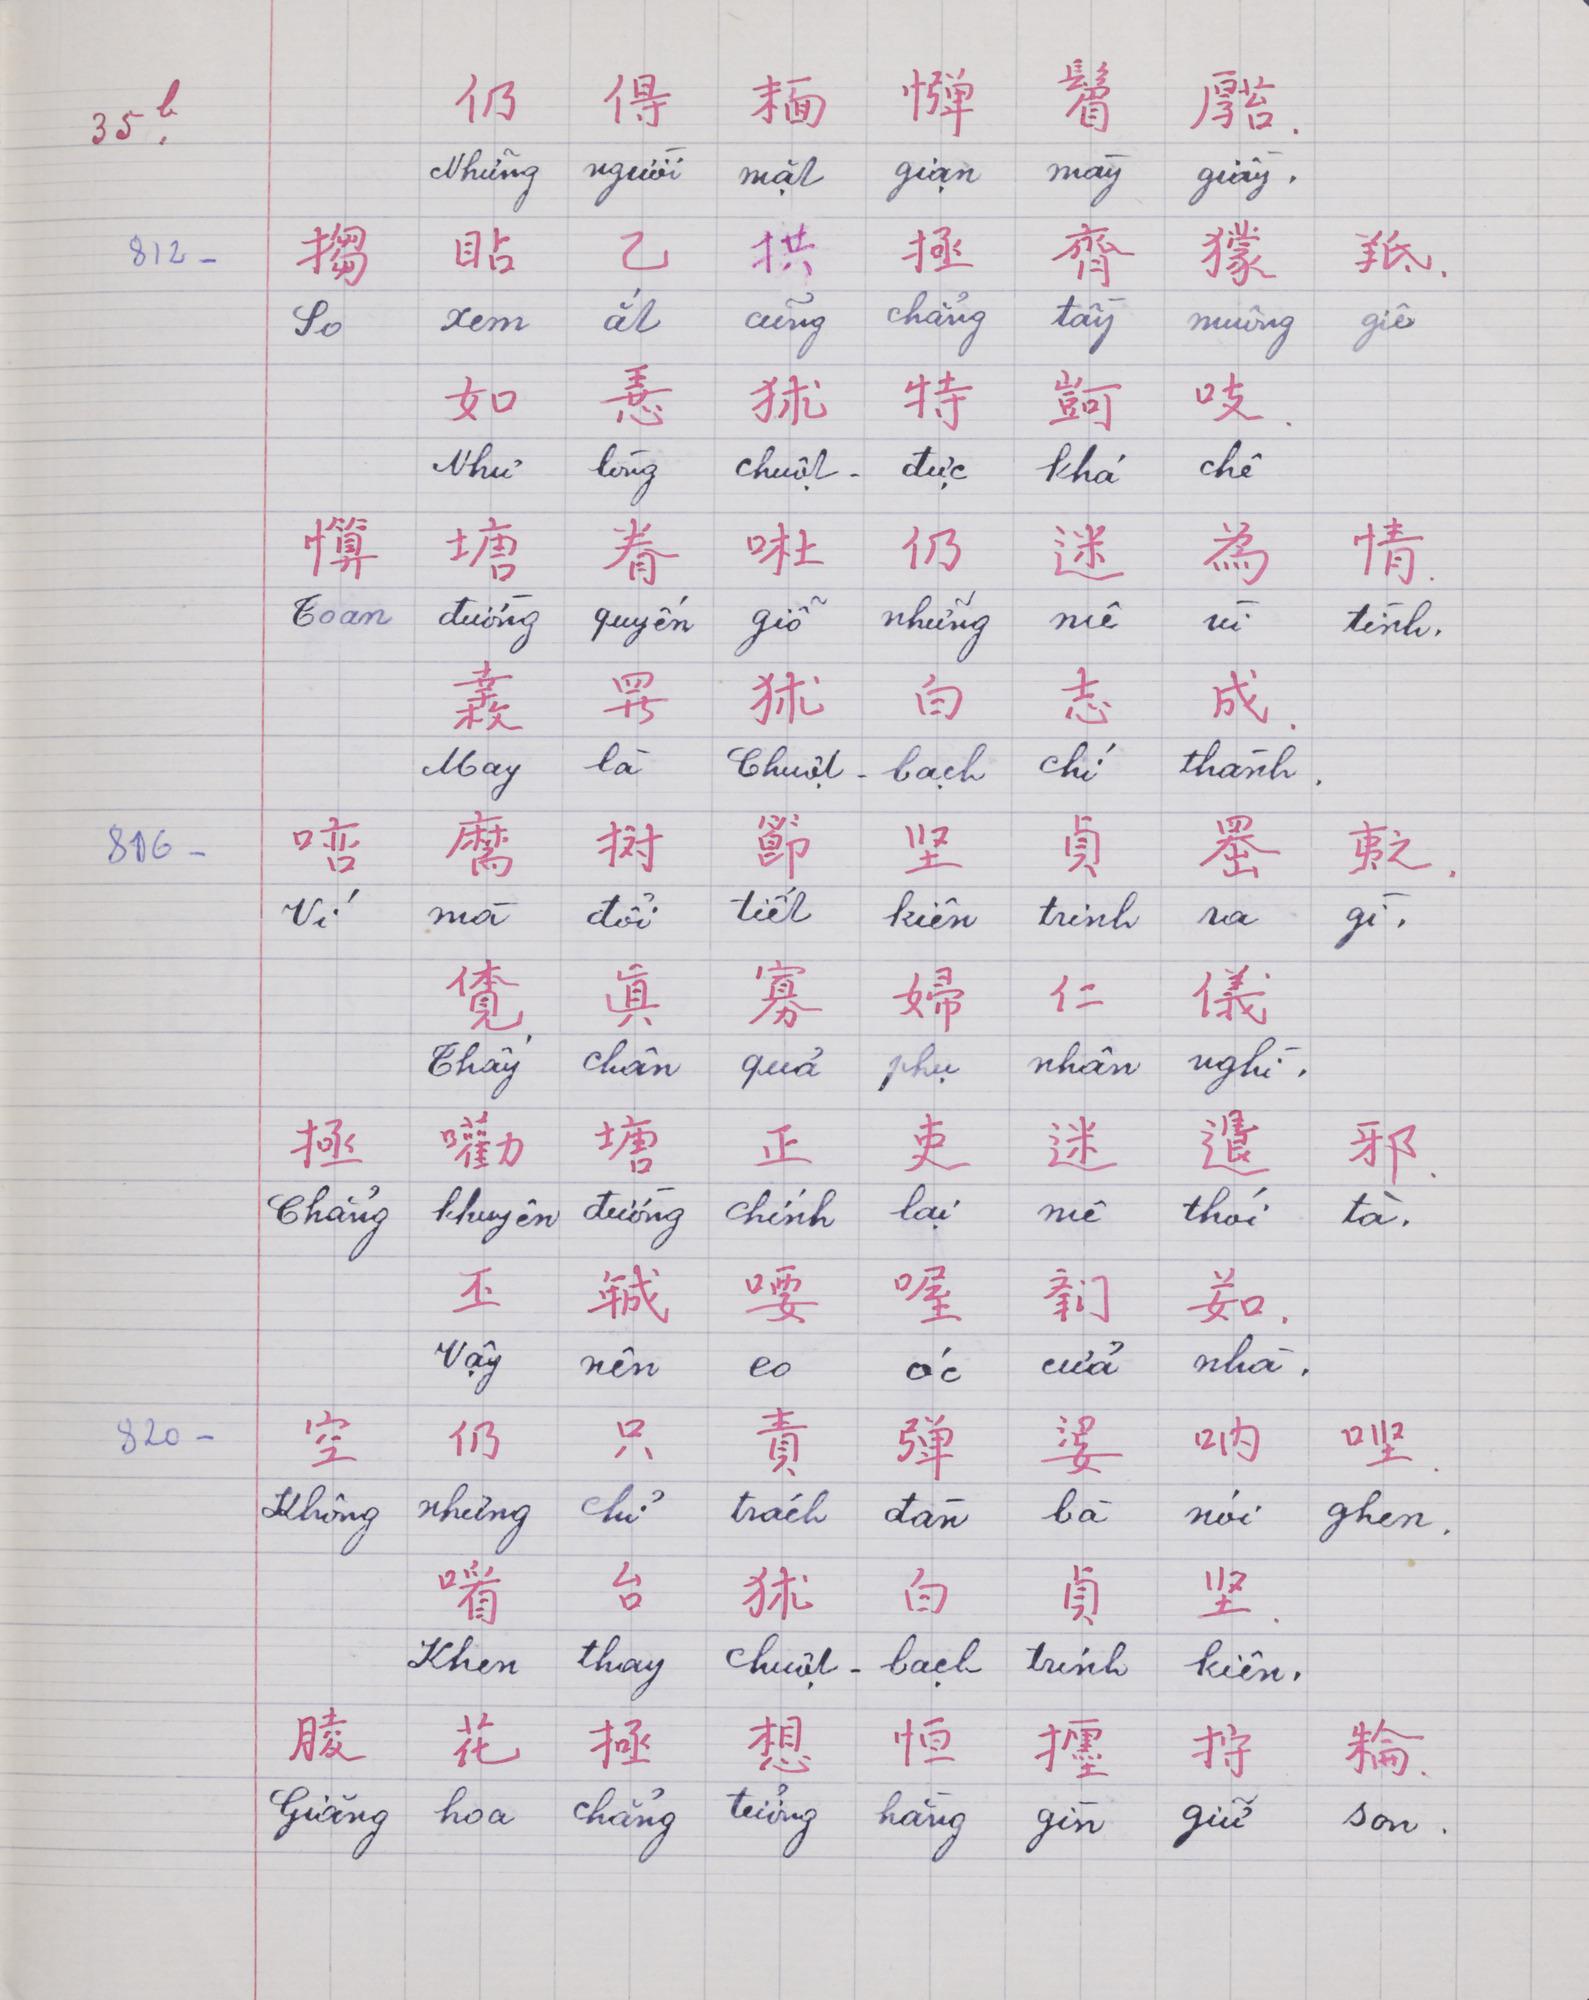 35b.
仍 㝵 𩈘 惮 𩯁 .
Những người mặt giạn mày giầy.
812- 搊 貼 乙 拱 拯 齊 獴 羝.
So xem ắt cũng chẳng tầy muông giê
如 㹥 特 吱.
Như lòng chuột - đực khá chê
塘 眷 仍 迷 為 情.
Toan đường quyến giỗ những mê vì tình.
㹥 白 志 成.
May là Chuột - bạch chí thành.
816- 節 坚 貞 .
Ví mà đổi tiết kiên trinh ra gì.
真 寡 婦 仁 儀
Thấy chân quả phụ nhân nghì.
拯 塘 正 吏 迷 退 邪.
Chẳng khuyên đường chính lại mê thói tà.
丕 喔 茹.
Vậy nên eo óc cửa nhà.
820- 空 仍 只 責 弹 婆 呐 .
Không những chỉ trách đàn bà nói ghen.
台 㹥 白 貞 坚.
Khen thay chuột - bạch trinh kiên.
花 拯 想 恒 .
Giăng hoa chẳng tưởng hằng gìn giữ son.